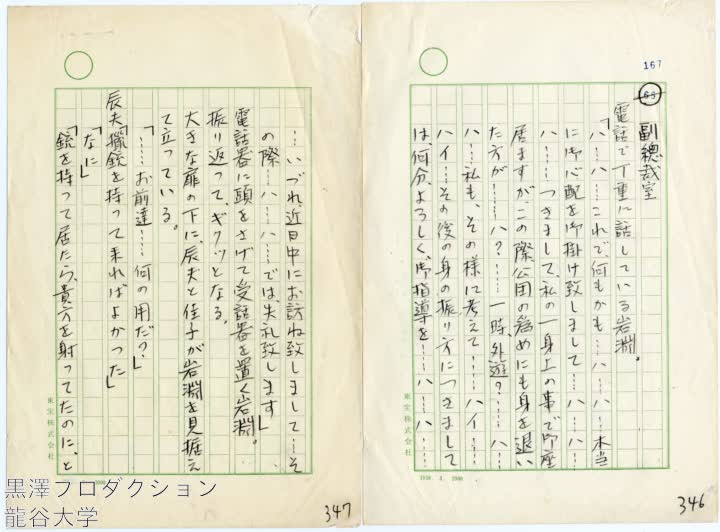 167
65
副總裁室
電話で丁重に話している岩淵。
「ハ……ハ……これで、何もかも……ハ……ハ……本当
に御心配を御掛け致しまして……ハ……ハ……
ハ……つきまして、私の一身上の事で御座
居ますが、この際公団の為めにも身を退い
た方が……ハ？……一時外遊？……ハ……
ハ……私も、その様に考えて……ハイ……
ハイ……その後の身の振り方につきまして
は、何分、よろしく御指導を……ハ……ハ……
東宝株式会社
346
……いづれ、近日中にお訪ね致しまして……そ
の際……ハ……ハ……では、失礼致します」
電話器に頭をさげて受話器を置く岩淵。
振り返って、ギクッとなる。
大きな扉の下に、辰夫と佳子が岩淵を見据え
て立っている。
「……お前達……何の用だ？」
辰夫「猟銃を持って来ればよかった」
「なに」
「銃を持って居たら、貴方を射ってたのに、と
東宝株式会社
347
黒澤プロダクション
龍谷大学